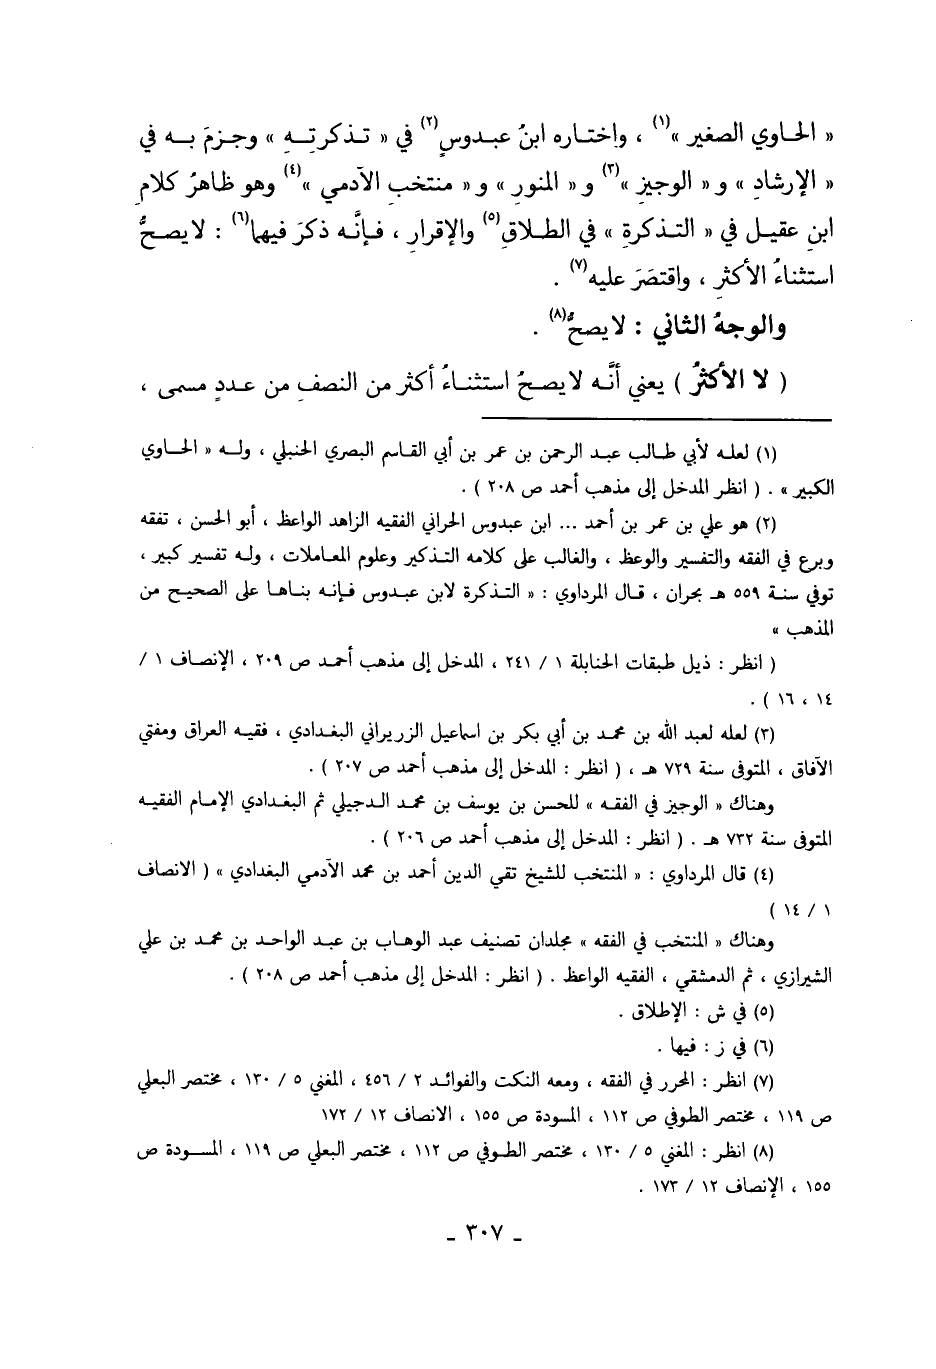 « الحاوي الصغير »(١) ، واختاره ابنُ عبدوسٍ(٢) في « تذكرتِهِ » وجزمَ به في
« الإرشادِ » و « الوجيزِ »(٣) و « المنورِ » و « منتخبِ الآدمي »(٤) وهو ظاهرُ كلامِ
ابنِ عقيل في « التذكرةِ » في الطلاقِ(٥) والإقرارِ ، فإنَّه ذكرَ فيها(٦) : لا يصحُّ
استثناءُ الأكثرِ ، واقتصَرَ عليه(٧) .
والوجهُ الثاني : لا يصحُّ(٨) .
( لا الأكثرُ ) يعني أنَّه لا يصحُ استثناءُ أكثر من النصفِ من عددٍ مسمى ،
(١) لعله لأبي طالب عبد الرحمن بن عمر بن أبي القاسم البصري الحنبلي ، وله « الحاوي
الكبير » . ( انظر المدخل إلى مذهب أحمد ص ٢٠٨ ) .
(٢) هو علي بن عمر بن أحمد ... ابن عبدوس الحراني الفقيه الزاهد الواعظ ، أبو الحسن ، تفقه
وبرع في الفقه والتفسير والوعظ ، والغالب على كلامه التذكير وعلوم المعاملات ، وله تفسير كبير ،
توفي سنة ٥٥٩ هـ بحران ، قال المرداوي : « التذكرة لابن عبدوس فإنه بناها على الصحيح من
المذهب »
( انظر : ذيل طبقات الحنابلة ١ / ٢٤١ ، المدخل إلى مذهب أحمد ص ٢٠٩ ، الإنصاف ١ /
١٤ ، ١٦ ) .
(٣) لعله لعبد الله بن محمد بن أبي بكر بن اسماعيل الزريراني البغدادي ، فقيه العراق ومفتي
الآفاق ، المتوفى سنة ٧٢٩ هـ ، ( انظر : المدخل إلى مذهب أحمد ص ٢٠٧ ) .
وهناك « الوجيز في الفقه » للحسن بن يوسف بن محمد الدجيلي ثم البغدادي الإمام الفقيه
المتوفى سنة ٧٣٢ هـ . ( انظر : المدخل إلى مذهب أحمد ص ٢٠٦ ) .
(٤) قال المرداوي : « المنتخب للشيخ تقي الدين أحمد بن محمد الآدمي البغدادي » ( الانصاف
١ / ١٤ )
وهناك « المنتخب في الفقه » مجلدان تصنيف عبد الوهاب بن عبد الواحد بن محمد بن علي
الشيرازي ، ثم الدمشقي ، الفقيه الواعظ . ( انظر : المدخل إلى مذهب أحمد ص ٢٠٨ ) .
(٥) في ش : الإطلاق .
(٦) في ز : فيها .
(٧) انظر : المحرر في الفقه ، ومعه النكت والفوائد ٢ / ٤٥٦ ، المغني ٥ / ١٣٠ ، مختصر البعلي
ص ١١٩ ، مختصر الطوفي ص ١١٢ ، المسودة ص ١٥٥ ، الانصاف ١٢ / ١٧٢
(٨) انظر : المغني ٥ / ١٣٠ ، مختصر الطوفي ص ١١٢ ، مختصر البعلي ص ١١٩ ، المسودة ص
١٥٥ ، الإنصاف ١٢ / ١٧٣ .
ـ ٣٠٧ ـ